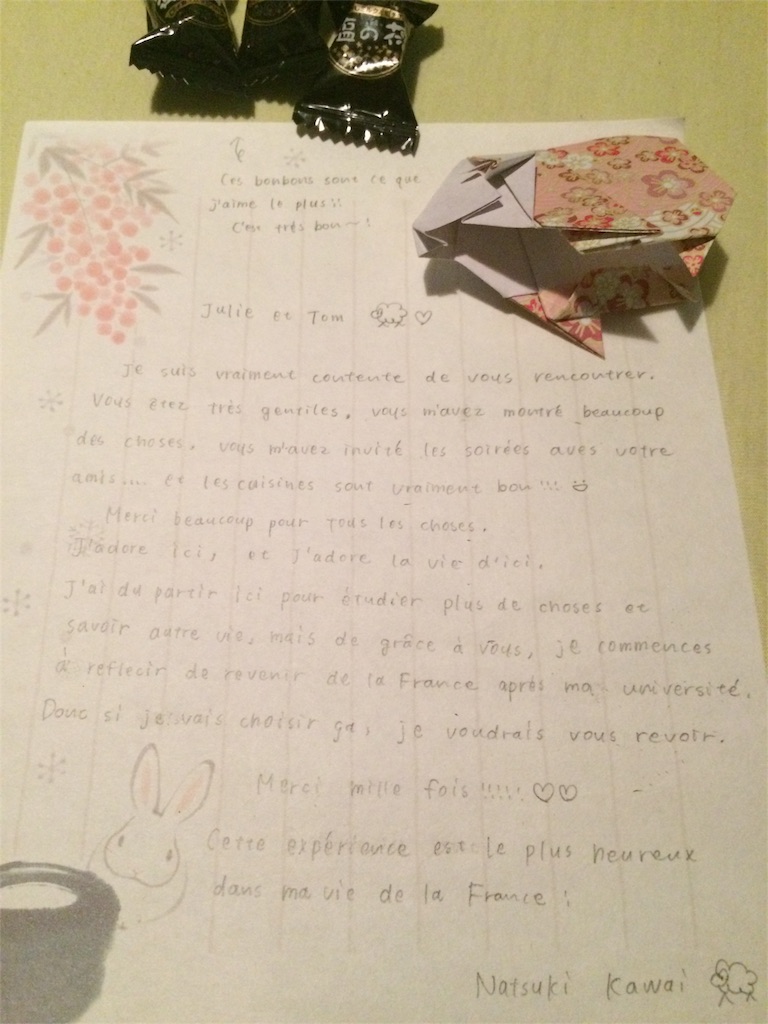 塩の花
Ces bonbons sont ce que
j'aime le plus!!
C'est très bon~!
Julie et Tom ♡
Je suis vraiment contente de vous rencontrer.
Vous étez très gentiles, vous m'avez montré beaucoup
des choses. vous m'avez invité les soirées aves votre
amis.... et les cuisines sont vraiment bon!!!
Merci beaucoup pour tous les choses.
J'adore ici, et j'adore la vie d'ici.
J'ai du partir ici pour étudier plus de choses et
savoir autre vie, mais de grâce à vous, je commences
à reflecir de revenir de la France après ma université.
Donc si je vais choisir ça, je voudrais vous revoir.
Merci mille fois!!!!! ♡♡
Cette expérience est le plus heureux
dans ma vie de la France!
Natsuki Kawai